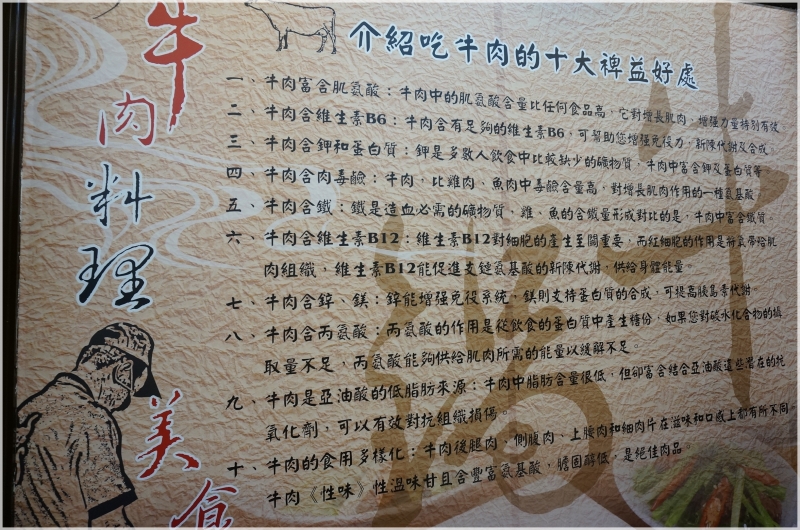 牛肉料理
美食
介紹吃牛肉的十大裨益好處
一、牛肉富含肌氨酸：牛肉中的肌氨酸含量比任何食品高，它對增長肌肉，增強力量特別有效
二、牛肉含維生素B6：牛肉含有足夠的維生素B6，可幫助您增強免疫力，新陳代謝及合成。
三、牛肉含鉀和蛋白質：鉀是多數人飲食中比較缺少的礦物質，牛肉中富含鉀及蛋白質等
四、牛肉含肉毒鹼：牛肉，比雞肉、魚肉中毒鹼含量高，對增長肌肉作用的一種氨基酸
五、牛肉含鐵：鐵是造血必需的礦物質，雞、魚的含鐵量形成對比的是，牛肉中富含鐵質。
六、牛肉含維生素B12：維生素B12對細胞的產生至關重要，而紅細胞的作用是將氧帶給肌
肉組織，維生素B12能促進支鏈氨基酸的新陳代謝，供給身體能量。
七、牛肉含鋅、鎂：鋅能增强免疫系統，鎂則支持蛋白質的合成，可提高胰島素代謝
八、牛肉含丙氨酸：丙氨酸的作用是從飲食的蛋白質中產生糖份，如果您對碳水化合物的攝
取量不足，丙氨酸能夠供給肌肉所需的能量以緩解不足。
九、牛肉是亞油酸的低脂肪來源：牛肉中脂肪含量很低，但卻富含結合亞油酸這些潛在的抗
氧化劑，可以有效對抗組織損傷。
十、牛肉的食用多樣化：牛肉後腿肉、側腹肉、上腰肉和細肉片在滋味和口感上都有所不同
牛肉《性味》性溫味甘且含豐富氨基酸，膽固醇低，是絕佳肉品。